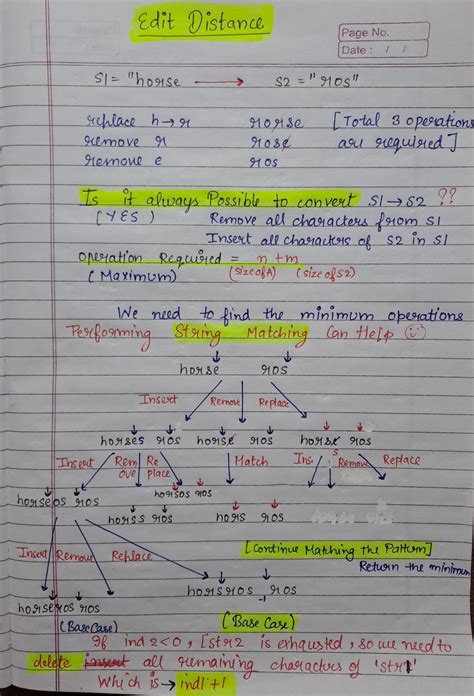 Edit Distance
Page No.
Date: / /
S1 = "horse → S2 = "ros"
replace h→r rorse [Total 3 operations
remove r rose are required]
remove e ros
Is it always Possible to convert S1→S2 ??
(YES) Remove all characters from S1
Insert all characters of S2 in S1
operation Required = n+m
(Maximum) (size of A) (size of S2)
We need to find the minimum operations
Performing String Matching Can Help
horse ros
Insert Remove Replace
horses ros horse ros horse ros
s
Insert Remove Replace Match Ins Remove Replace
horseos ros horsos ros
horss ros hors ros
[Continue Matching the Pattern]
Return the minimum
Insert Remove Replace
horseros ros horsros ros
-1
(Base Case) (Base Case)
If ind2<0, [str2 is exhausted, so we need to
delete insert all remaining characters of 'str1'
Which is → ind1+1